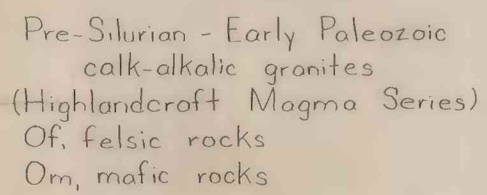 Pre-Silurian - Early Paleozoic
calk-alkalic granites
(Highlandcroft Magma Series)
Of, felsic rocks
Om, mafic rocks